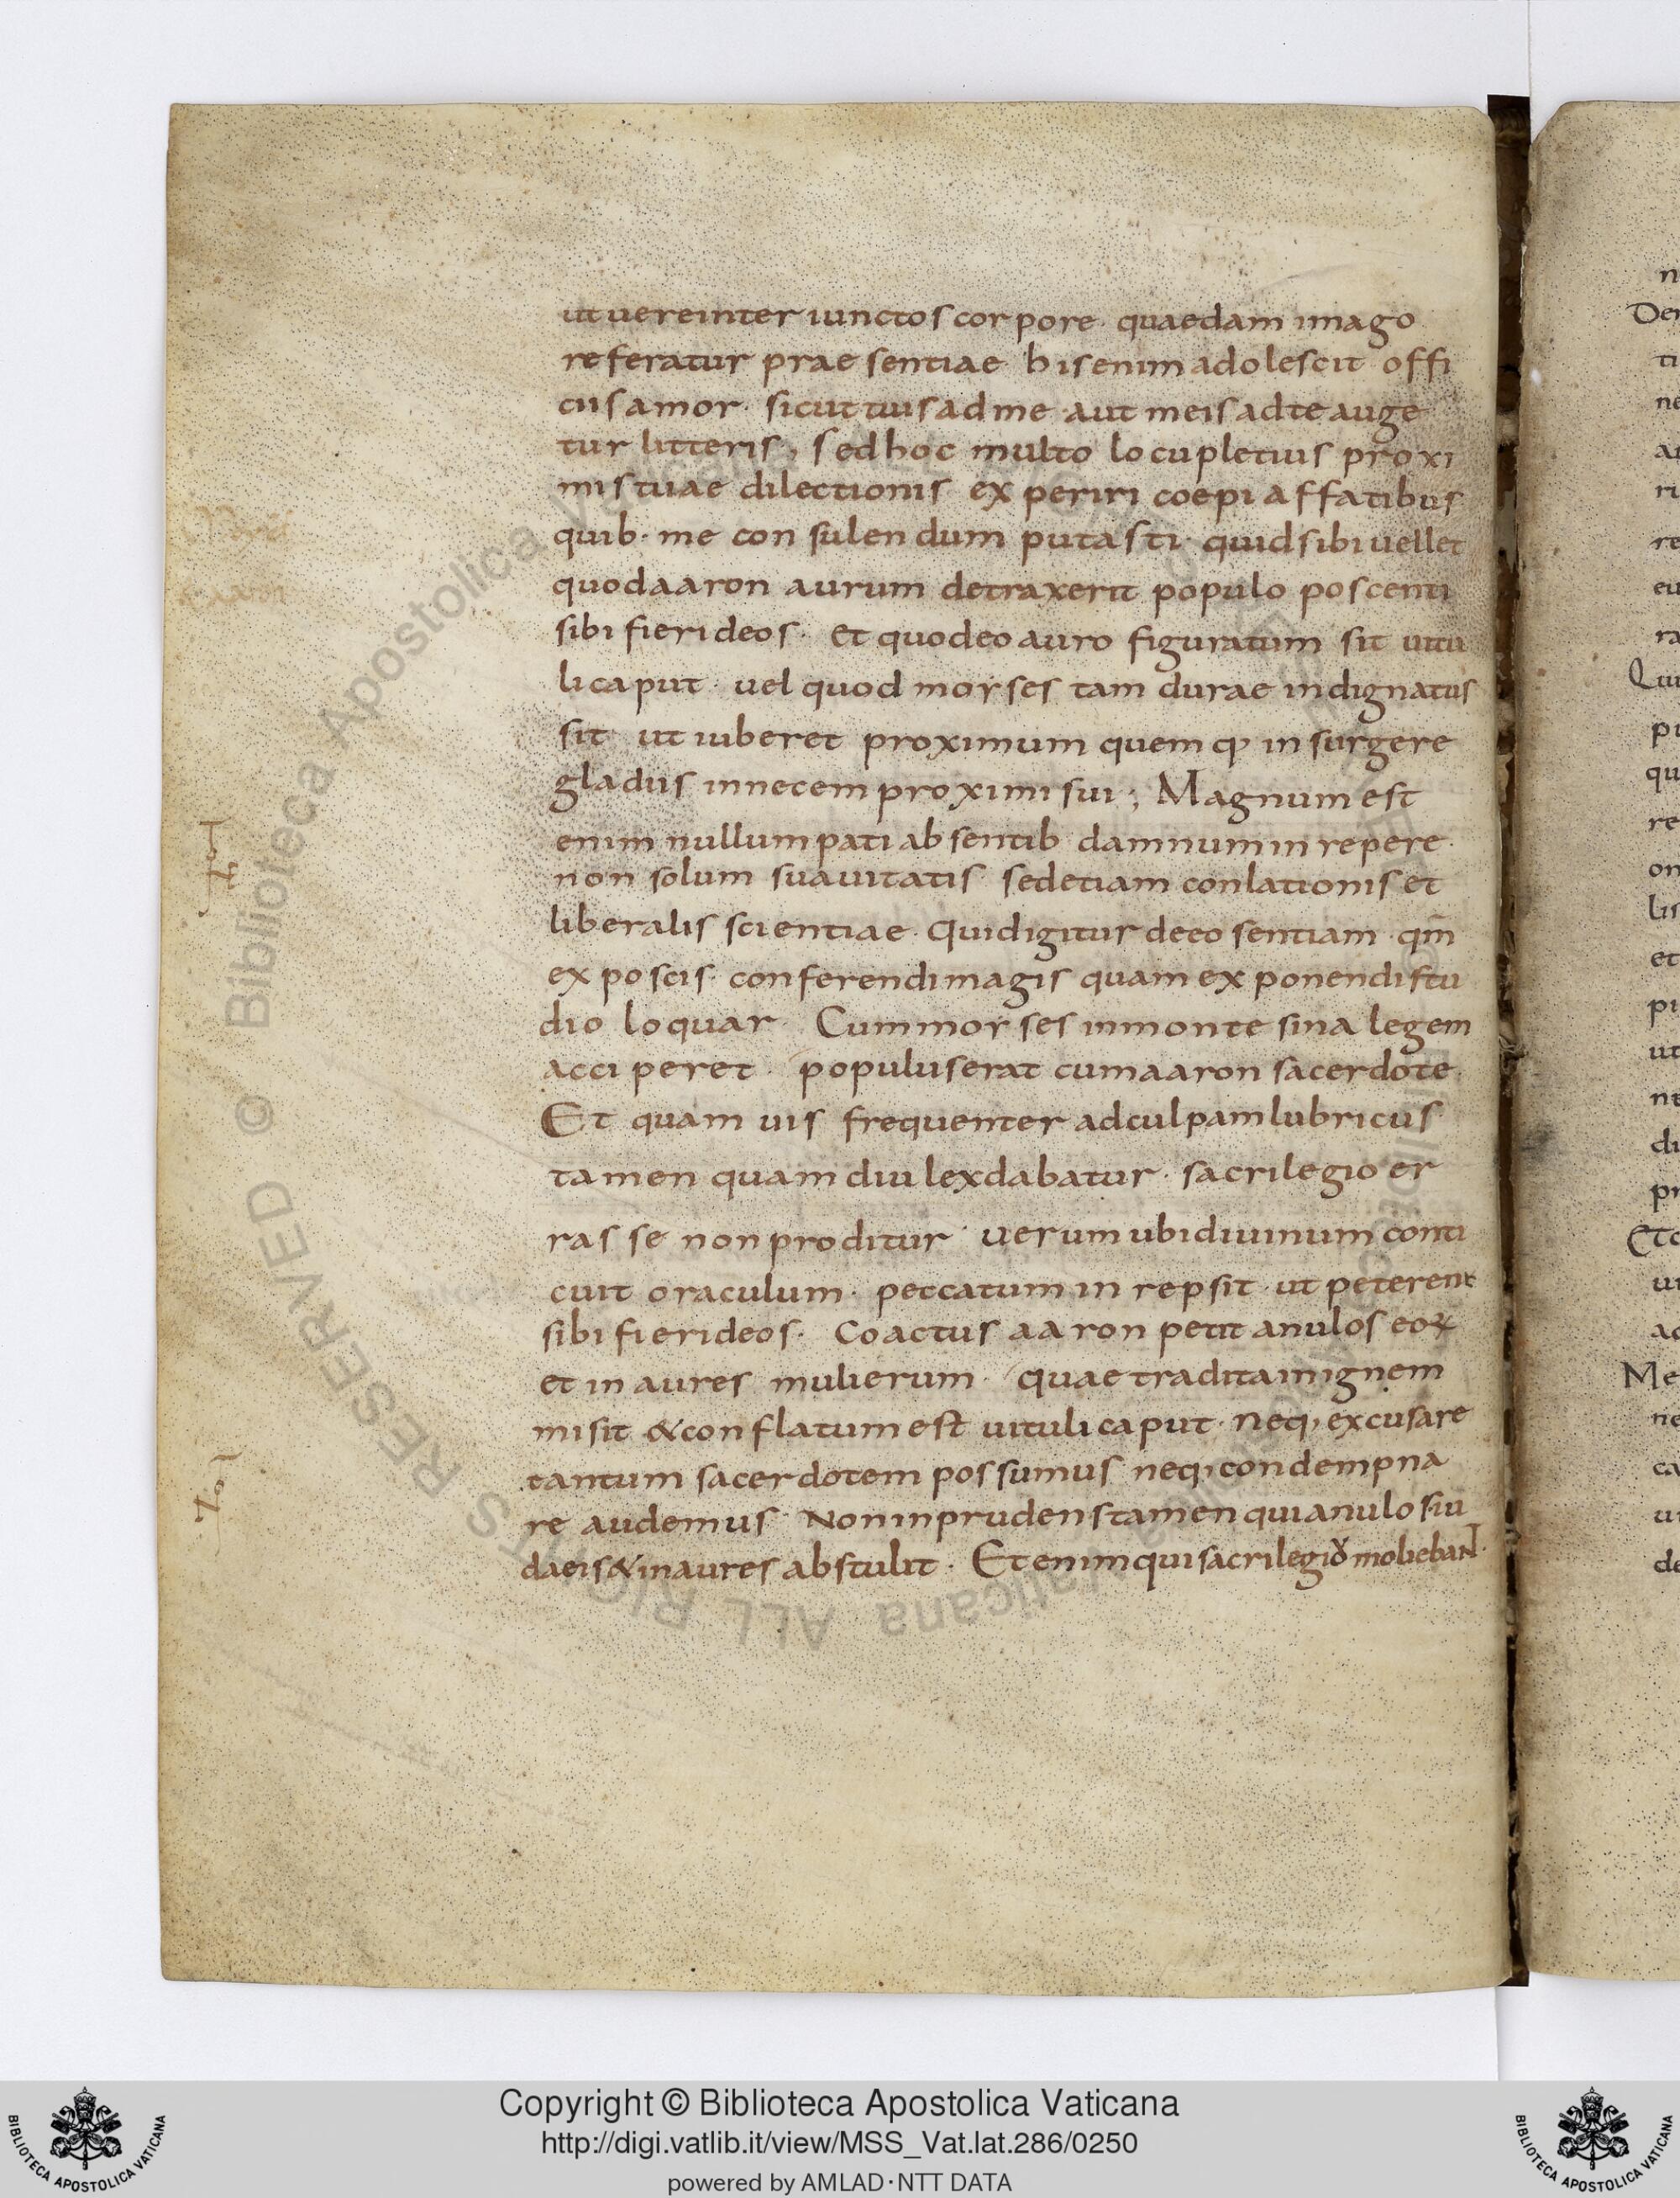 ut uere inter iunctos corpore· quaedam imago
referatur praesentiae his enim adolescit offi
ciis amor· sicut tuis ad me aut meis ad te auge
tur litteris; sed hoc multo locupletius proxi
mis tuae dilectionis experiri coepi affatibus
quib· me consulendum putasti· quid sibi uellet
quod aaron aurum detraxerit populo poscenti
sibi fieri deos· et quod eo auro figuratum sit uitu
li caput· uel quod moyses tam durae indignatus
sit ut iuberet proximum quemq; insurgere
gladiis in necem proximi sui; Magnum est
enim nullum pati absentib damnum inrepere·
non solum suauitatis sed etiam conlationis et
liberalis scientiae· Quid igitur de eo sentiam· qm̄
exposcis· conferendi magis quam exponendi stu
dio loquar· Cum moyses in monte sina legem
acciperet· populus erat cum aaron sacerdote·
Et quam uis frequenter ad culpam lubricus
tamen quam diu lex dabatur· sacrilegio er
rasse non proditur· uerum ubi diuinum conti
cuit oraculum· peccatum inrepsit· ut peterent
sibi fieri deos· Coactus aaron petit anulos eoꝝ
et inaures mulierum· quae tradita in ignem
misit & conflatum est uituli caput· neq; excusare
tantum sacerdotem possumus neq; condempna
re audemus· Non inprudens tamen qui anulos iu
daeis & inaures abstulit· Etenim qui sacrilegiū moliebaNT·
Copyright © Biblioteca Apostolica Vaticana
http://digi.vatlib.it/view/MSS_Vat.lat.286/0250
powered by AMLAD·NTT DATA
BIBLIOTECA APOSTOLICA VATICANA
BIBLIOTECA APOSTOLICA VATICANA